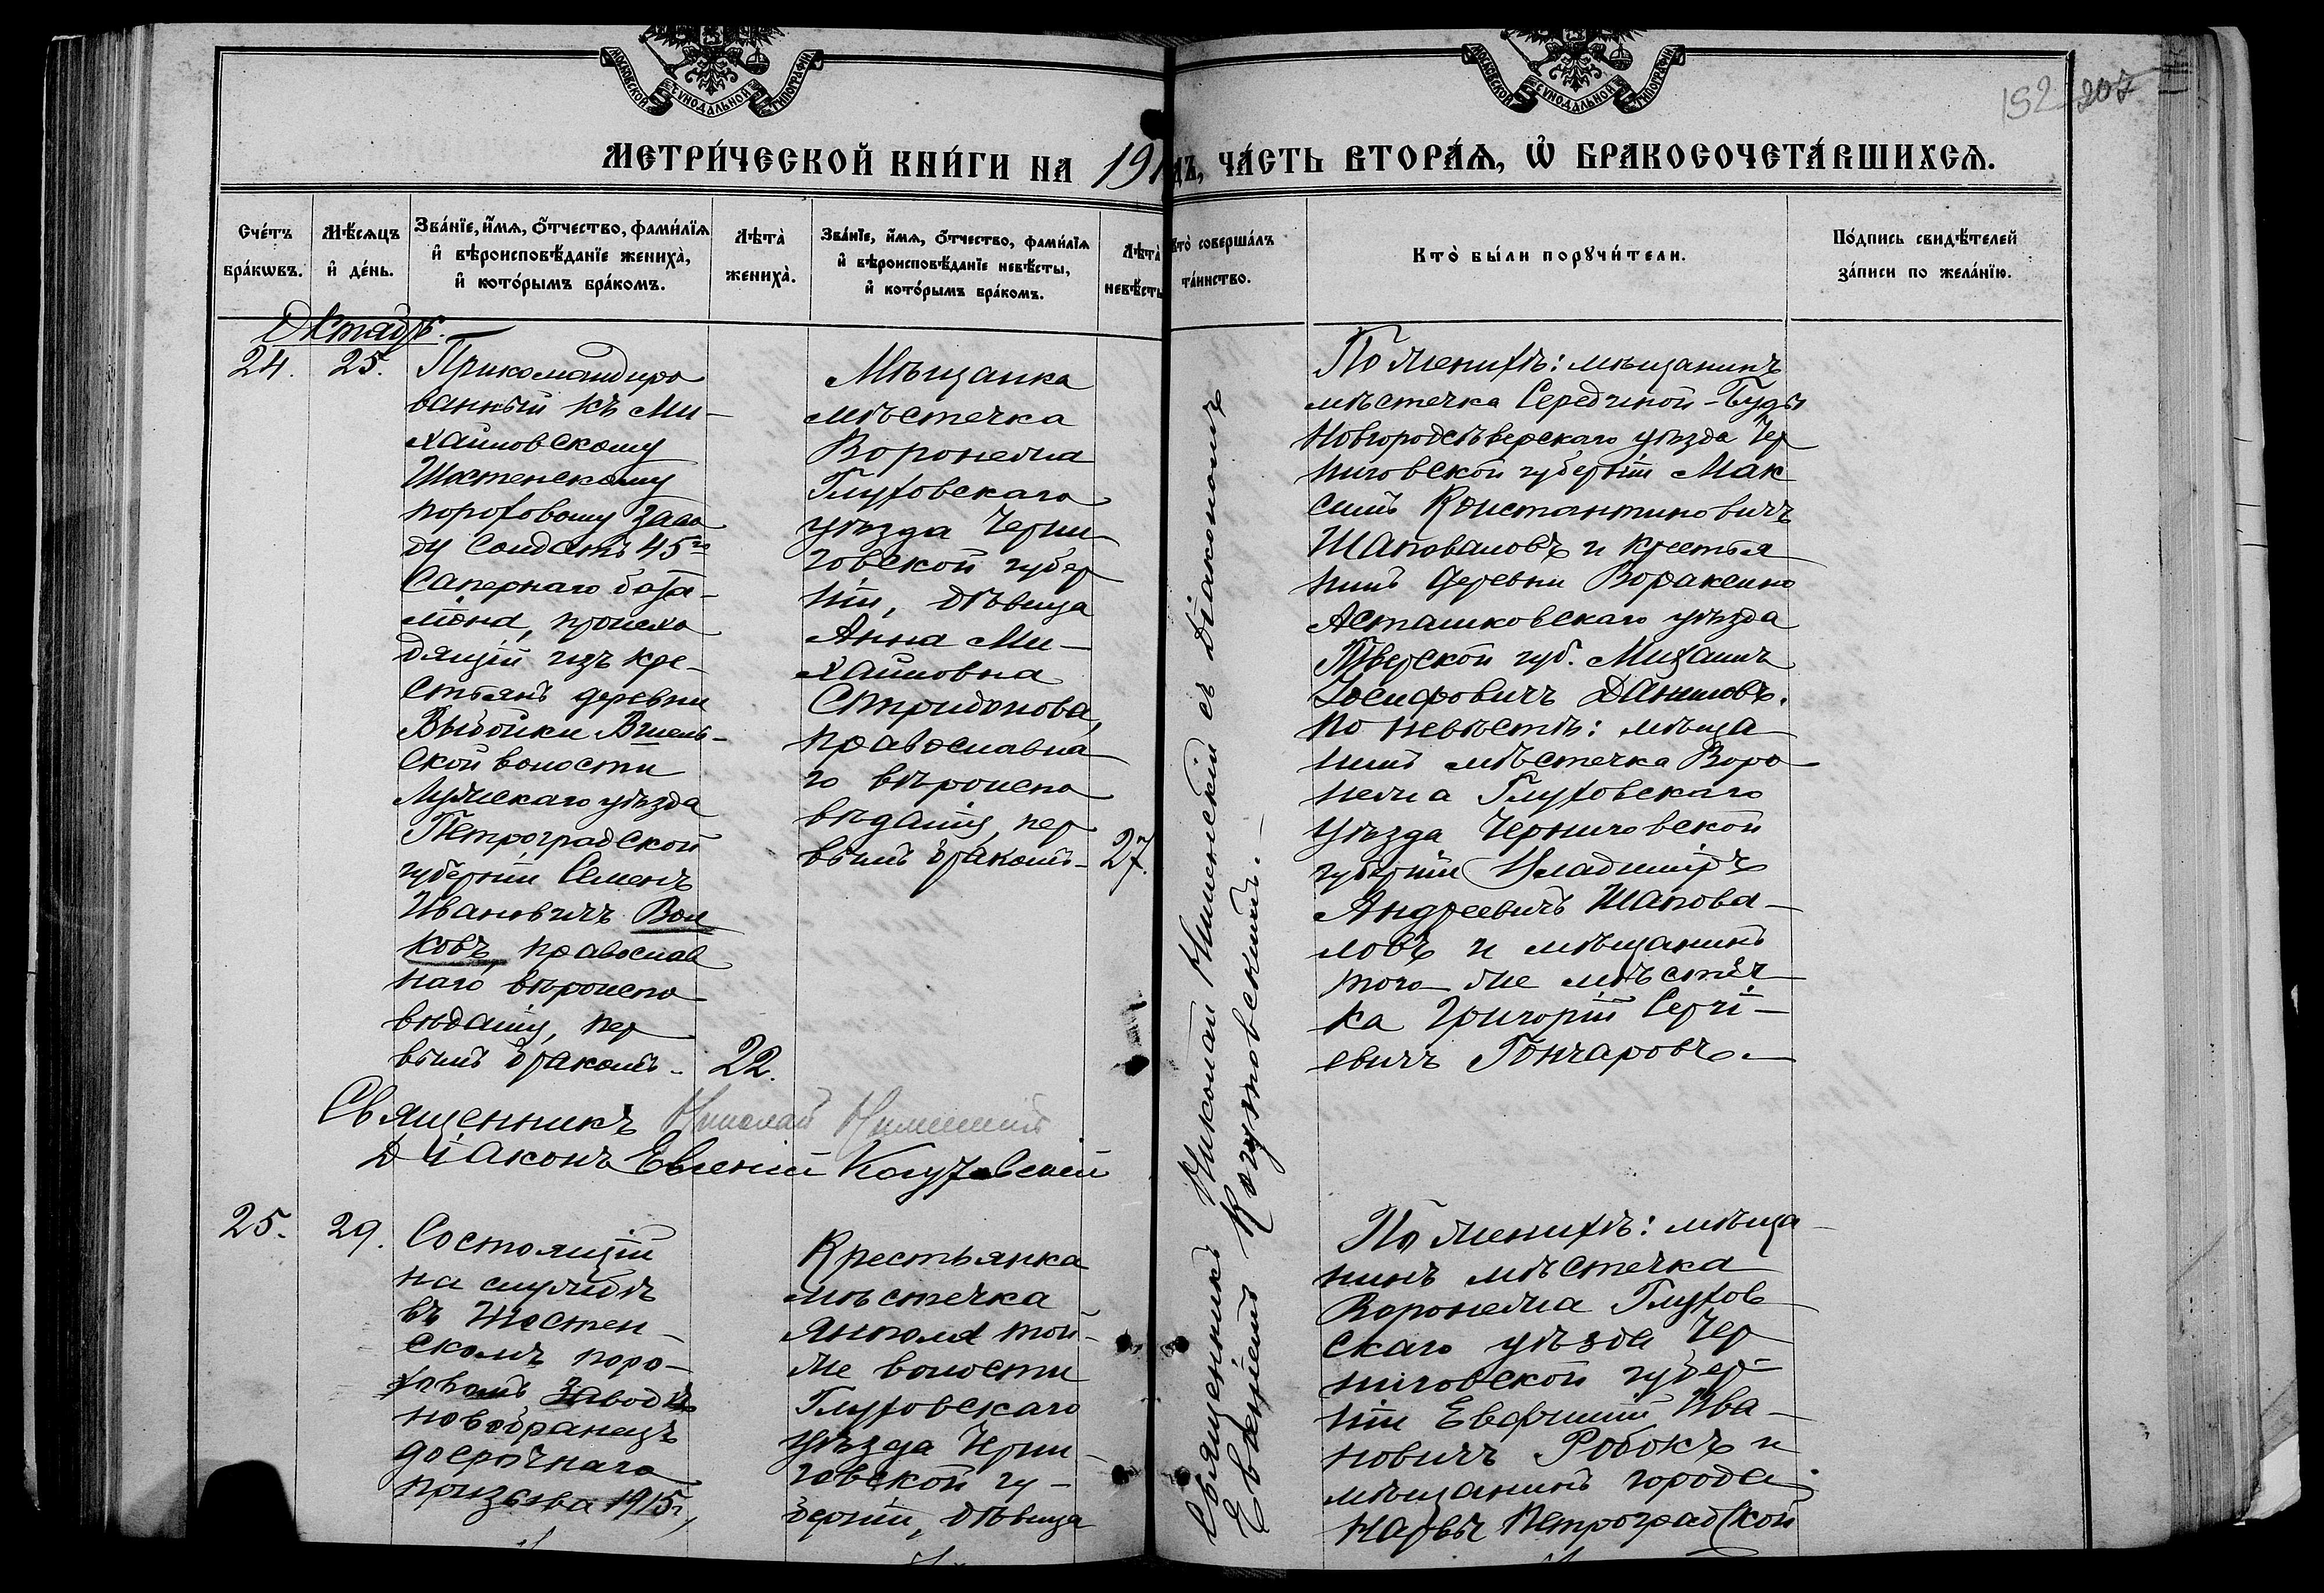 МОСКОВСКОЙ СѴНОДАЛЬНОЙ ТИПОГРАФІИ
МОСКОВСКОЙ СѴНОДАЛЬНОЙ ТИПОГРАФІИ
152 207
МЕТРИ́ЧЕСКОЙ КНИ́ГИ НА 191
дъ, ЧА́СТЬ ВТОРА́Ѧ, Ѡ҆ БРАКОСОЧЕТА́ВШИХСѦ.
Сче́тъ
бра́кѡвъ.
Мѣ́сѧцъ
и҆ де́нь.
Зва́нїе, и҆́мѧ, ѻ҆́тчество, фами́лїѧ
и҆ вѣроисповѣ́данїе жениха̀,
и҆ кото́рымъ бра́комъ.
Лѣта̀
жениха̀.
Зва́нїе, и҆́мѧ, ѻ҆́тчество, фами́лїѧ
и҆ вѣроисповѣ́данїе невѣ́сты,
и҆ кото́рымъ бра́комъ.
Лѣта̀
невѣ́сты
Кто̀ соверша́лъ
та́инство.
Кто̀ бы́ли порꙋчи́тели.
По́дпись свидѣ́телей
за́писи по жела́нїю.
Октябрь.
24.
25.
Прикомандиро
ванный къ Ми-
хайловскому
Шостенскому
пороховому заво
ду солдатъ 45го
Сапернаго бата-
ліона, происхо
дящій изъ кре-
стьянъ деревни
Выбойки
ской волости
Лужскаго уѣзда
Петроградской
губерніи Семенъ
Ивановичъ Вол
ковъ, православ
наго вѣроиспо
вѣданія, пер
вымъ бракомъ.
22.
Мѣщанка
мѣстечка
Воронежа
Глуховскаго
уѣзда Черни-
говской губер
ніи, дѣвица
Анна Ми-
хайловна
Спиридонова,
православна
го вѣроиспо
вѣданія, пер
вымъ бракомъ-
27.
Священникъ Николай Нименскій съ діакономъ
Евгеніемъ Когутовскимъ.
По женихѣ: мѣщанинъ
мѣстечка Середчной-Буды
Новгородсѣверскаго уѣзда Чер
ниговской губерніи Мак
симъ Константиновичъ
Шаповаловъ и крестья
нинъ деревни
Асташковскаго уѣзда
Тверской губ. Михаилъ
Іосифовичъ Даниловъ.
По невѣстѣ: мѣща
нинъ мѣстечка Воро
нежа Глуховскаго
уѣзда Черниговской
губерніи Владиміръ
Андреевичъ Шапова-
ловъ и мѣщанинъ
того-же мѣстеч
ка Григорій Сергі-
евичъ Гончаровъ.
Священникъ Николай Нименскій
Діаконъ Евгеній Когутовскій
25.
29.
Состоящій
на службѣ
въ Шостен-
скомъ поро-
ховомъ заводѣ
новобранецъ
досрочнаго
призыва 1915г,
Крестьянка
мѣстечка
Янполя той-
же волости
Глуховскаго
уѣзда Черни-
говской гу-
берніи, дѣвица
По женихѣ: мѣща-
нинъ мѣстечка
Воронежа Глухов
скаго уѣзда Чер
ниговской губер-
ніи Евфимій Ива-
новичъ Робокъ и
мѣщанинъ города
Нарвы Петроградской